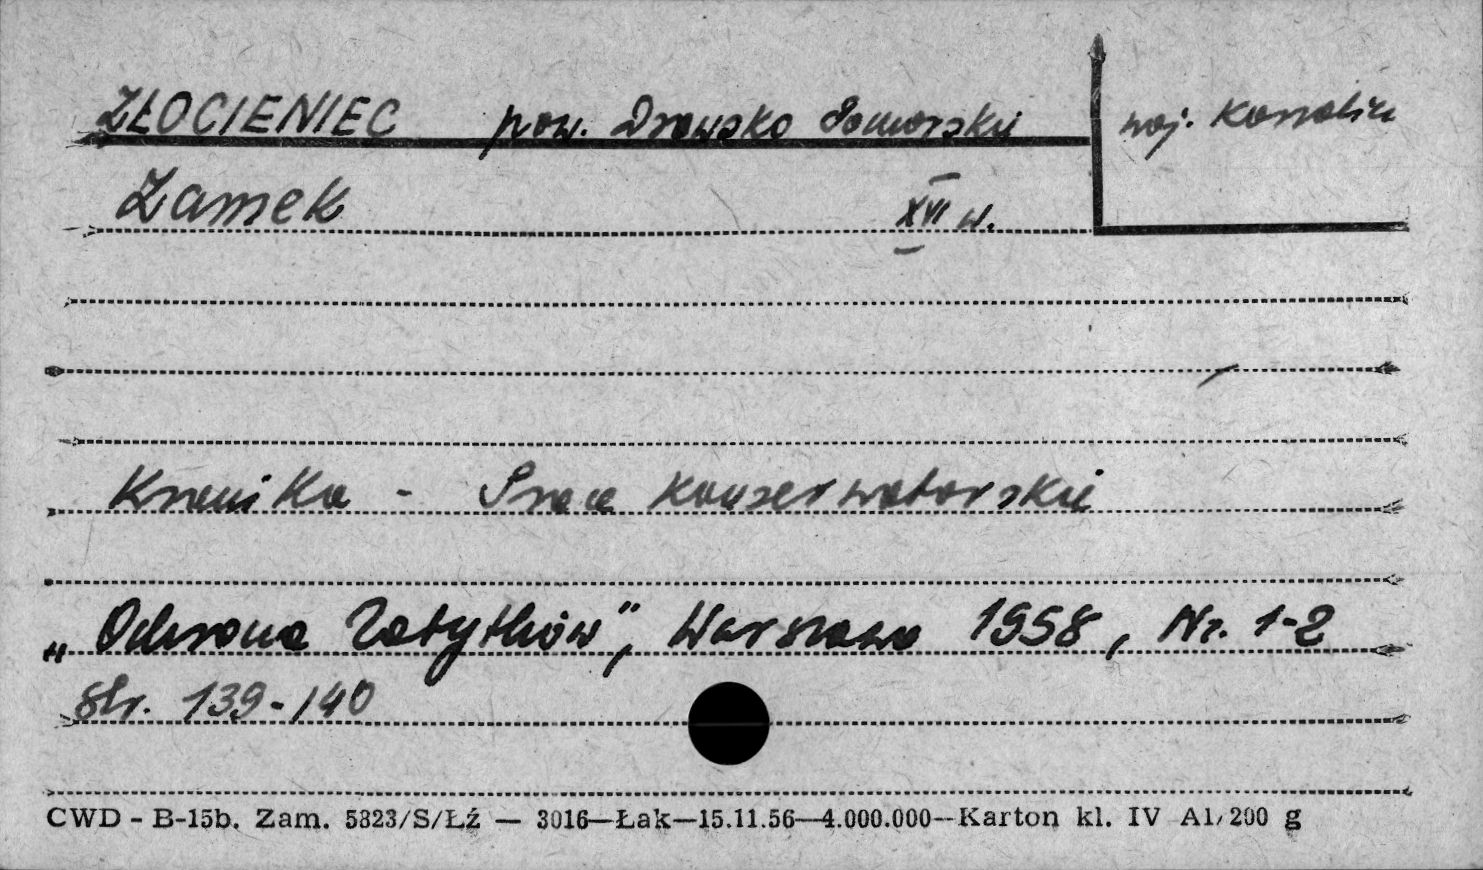 ZŁOCIENIEC pow. Drawsko Pomorskie woj. Koszalin
Zamek XVI w.
Kronika - Prace konserwatorskie
„Ochrona Zabytków”, Warszawa 1958, Nr. 1-2
Str. 139-140
CWD - B-15b. Zam. 5823/S/Łź — 3016—Łak—15.11.56—4.000.000—Karton kl. IV A1/200 g